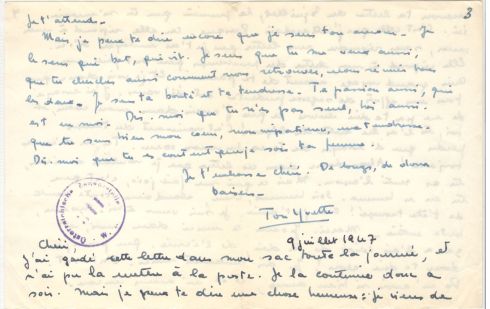 3
Je t'attends.
Mais je peux te dire encore que je sens ton amour. Je
le sens qui bat, qui vit. Je sens que tu me veux aussi,
que tu cherches aussi comment nous retrouver, nous
Ta passion aussi, qui
est dans. Je sens ta bonté et ta tendresse.
est en moi. Dis-moi que tu n'es pas seul, toi aussi.
que tu sens bien mon cœur, ma tendresse.
Dis-moi que tu es content que je sois ta femme.
Je t'embrasse chéri. De longs, de doux
baisers.
Ton Yvette
Österreichische Zensurstelle
9 juillet 1947
Chéri,
j'ai gardé cette lettre dans mon sac toute la journée, et
n'ai pu la mettre à la poste. Je la continue donc ce
soir. Mais je peux te dire une chose heureuse : je viens de